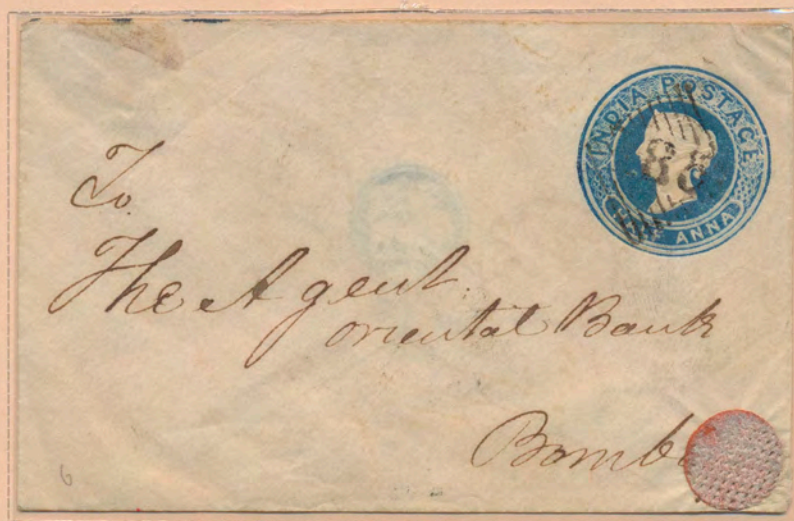 INDIA POSTAGE
ANNA
To
The Agent
oriental Bank
Bomb
6